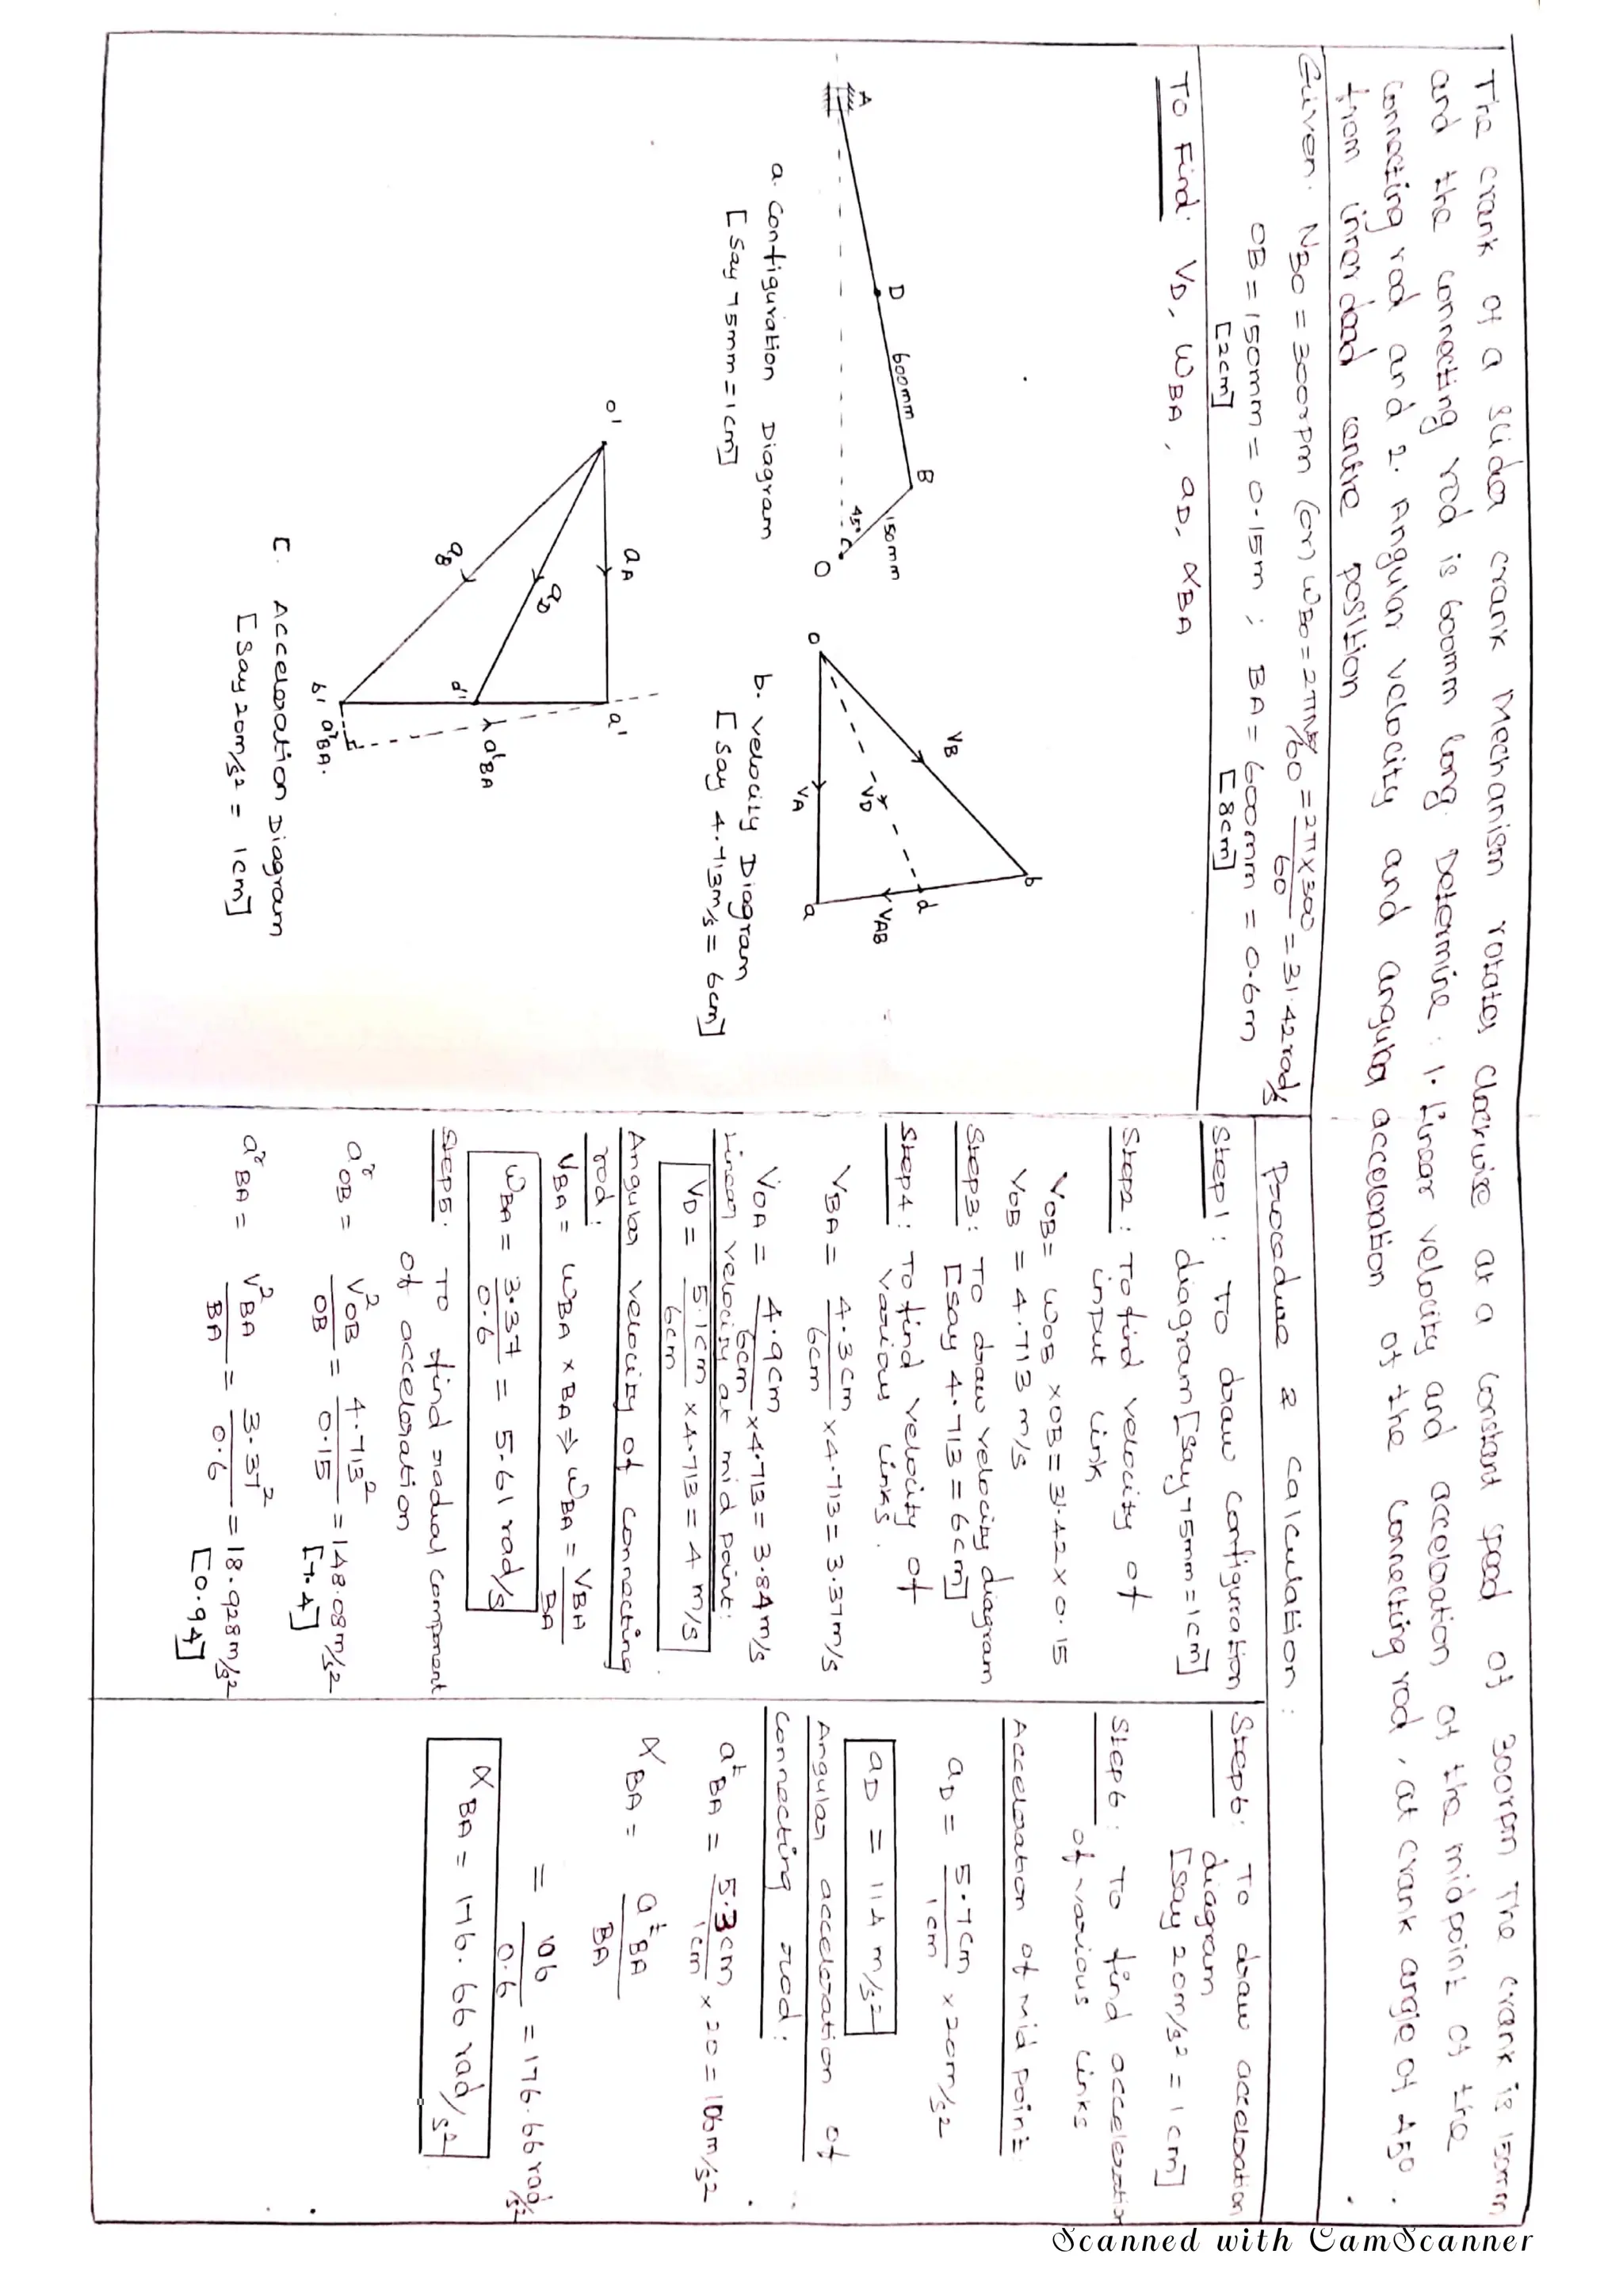 The crank of a slider crank Mechanism rotates clockwise at a constant speed of 300rpm The crank is 150mm
and the connecting rod is 600mm long. Determine : 1. Linear velocity and acceleration of the midpoint of the
connecting rod and 2. Angular velocity and angular acceleration of the connecting rod, at crank angle of 450.
from inner dead centre position
Given. NBO = 300rpm (or) ωBO = 2πN/60 = 2π×300/60 = 31.42rad/s
OB = 150mm = 0.15m ; BA = 600mm = 0.6m
[2cm] [8cm]
To Find: VD, ωBA, aD, αBA
A
D
600mm
B
150mm
45°
O
a. Configuration Diagram
[Say 75mm = 1cm]
o
VB
b
VD
d
VAB
VA
a
b. Velocity Diagram
[Say 4.713m/s = 6cm]
o'
aA
a'
aD
aB
d'
atBA
b'
arBA.
C. Acceleration Diagram
[Say 20m/s2 = 1cm]
Procedure & Calculation:
Step1: To draw configuration
diagram [Say 75mm = 1cm]
Step2: To find velocity of
input link
VOB = ωOB × OB = 31.42 × 0.15
VOB = 4.713 m/s
Step3: To draw velocity diagram
[Say 4.713 = 6cm]
Step4: To find velocity of
various links.
VBA = 4.3cm/6cm × 4.713 = 3.37m/s
VOA = 4.9cm/6cm × 4.713 = 3.84m/s
Linear velocity at mid point:
VD = 5.1cm/6cm × 4.713 = 4 m/s
Angular velocity of connecting
rod:
VBA = ωBA × BA ⇒ ωBA = VBA/BA
ωBA = 3.37/0.6 = 5.61 rad/s
Step5. To find radial component
of acceleration
arOB = V2OB/OB = 4.713²/0.15 = 148.08m/s2
[7.4]
arBA = V2BA/BA = 3.37²/0.6 = 18.928m/s2
[0.94]
Step6: To draw acceleration
diagram
[Say 20m/s2 = 1cm]
Step6: To find acceleration
of various links
Acceleration of Mid point
aD = 5.7cm/1cm × 20m/s2
aD = 114 m/s2
Angular acceleration of
connecting rod:
atBA = 5.3cm/1cm × 20 = 106m/s2
αBA = atBA/BA
= 106/0.6 = 176.66rad/s2
αBA = 176.66 rad/s2
Scanned with CamScanner